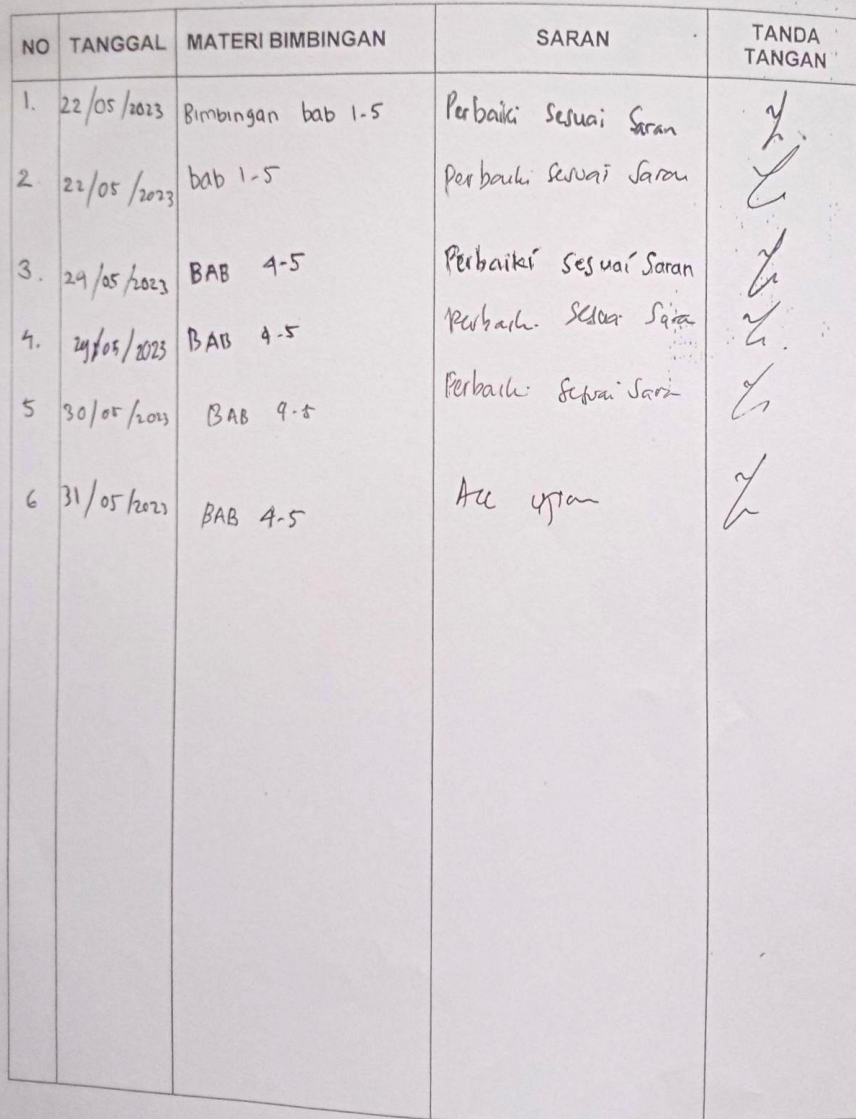 NO TANGGAL MATERI BIMBINGAN SARAN TANDA TANGAN
1. 22/05/2023 Bimbingan bab 1-5 Perbaiki Sesuai Saran
2. 22/05/2023 bab 1-5 Perbaiki Sesuai Saran
3. 29/05/2023 BAB 4-5 Perbaiki Sesuai Saran
4. 29/05/2023 BAB 4-5 Perbaiki Sesuai Saran
5 30/05/2023 BAB 4-5 Perbaiki Sesuai Saran
6 31/05/2023 BAB 4-5 Acc ujian